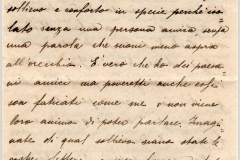 sollievo e conforto in specie perchè iso-
lato senza una persona amica senza
una parola che suoni meno aspra
all'orecchio. E' vero che ho dei paesa-
ni amici ma poveretti anche essi
son faticati come me e non viene
loro animo di poter parlare. Imagi-
nate di qual sollievo siano state le
vostre lettere e